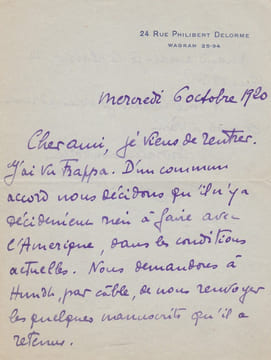 24 RUE PHILIBERT DELORME
WAGRAM 25-94
Mercredi 6 octobre 1920
Cher ami, je viens de rentrer.
J'ai vu Frappa. D'un commun
accord nous décidons qu'il n'y a
décidément rien à faire avec
l'Amérique, dans les conditions
actuelles. Nous demandons à
par câble, de nous renvoyer
les quelques manuscrits qu'il a
retenus.